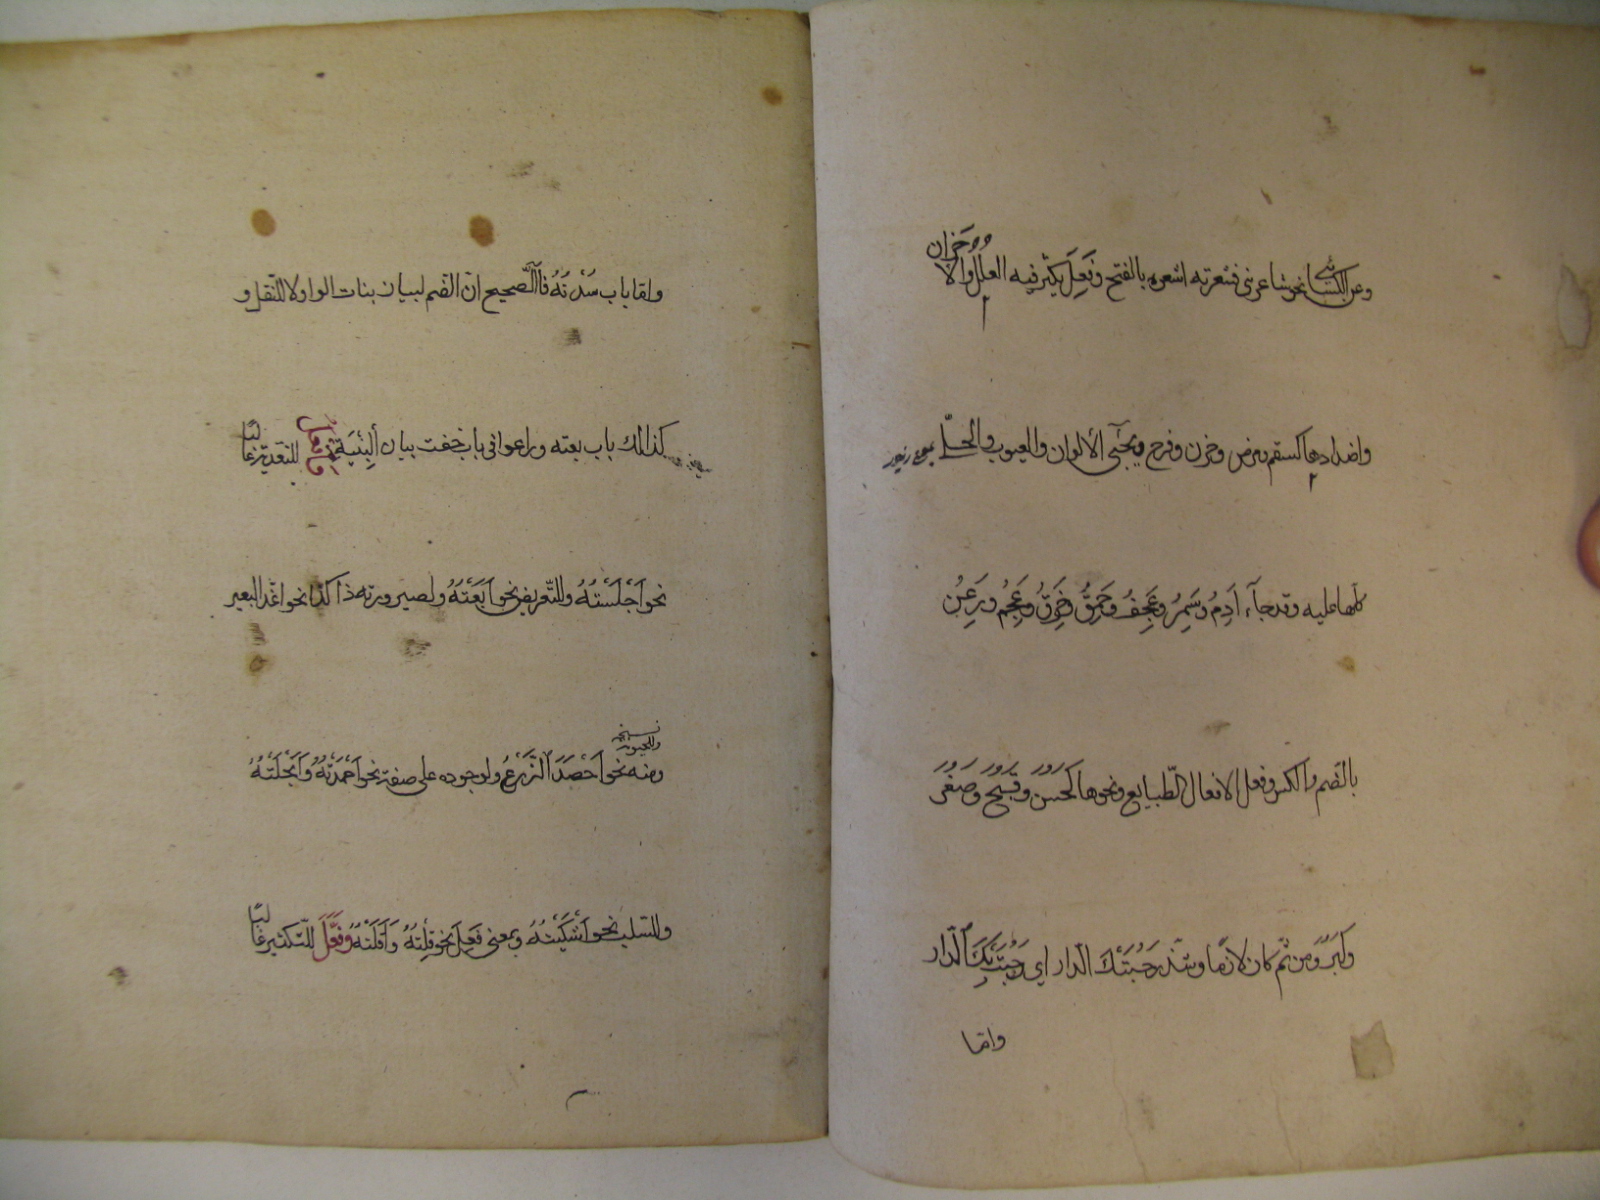 وعن الكسائي نحو شاعرني فشعرته اشعره بالفتح وفَعِلَ يكثر فيه العلل والاحزان
واضدادها كسقم ومرض وحزن وفرح ويجيئ الألوان والعيوب والحلى
كلها عليه وقد جآء أدم وسمر وعجف وحمق وخرق وعجم ورعن
بالضم والكسر وفعل لافعال الطبايع ونحوها كحسن وقبح وصغر
وكبر ومن ثم كان لازما وشذ رحبتك الدار اي رحبت بك الدار
واما
واما باب سدته فالصحيح ان الضم لبيان بنات الواو لا للنقل و
كذلك باب بعته وراعوا في باب خفت بيان البنية وافعل للتعدية غالبا
نحو اجلسته وللتعريض نحو ابعته ولصيرورته ذا كذا نحو اغد البعير
نسخه
وللحينونة
ومنه نحو احصد الزرع ولوجوده على صفة نحو احمدته وابخلته
وللسلب نحو اشكيته وبمعنى فعل نحو قلته واقلته وفعّل للتكثير غالبا